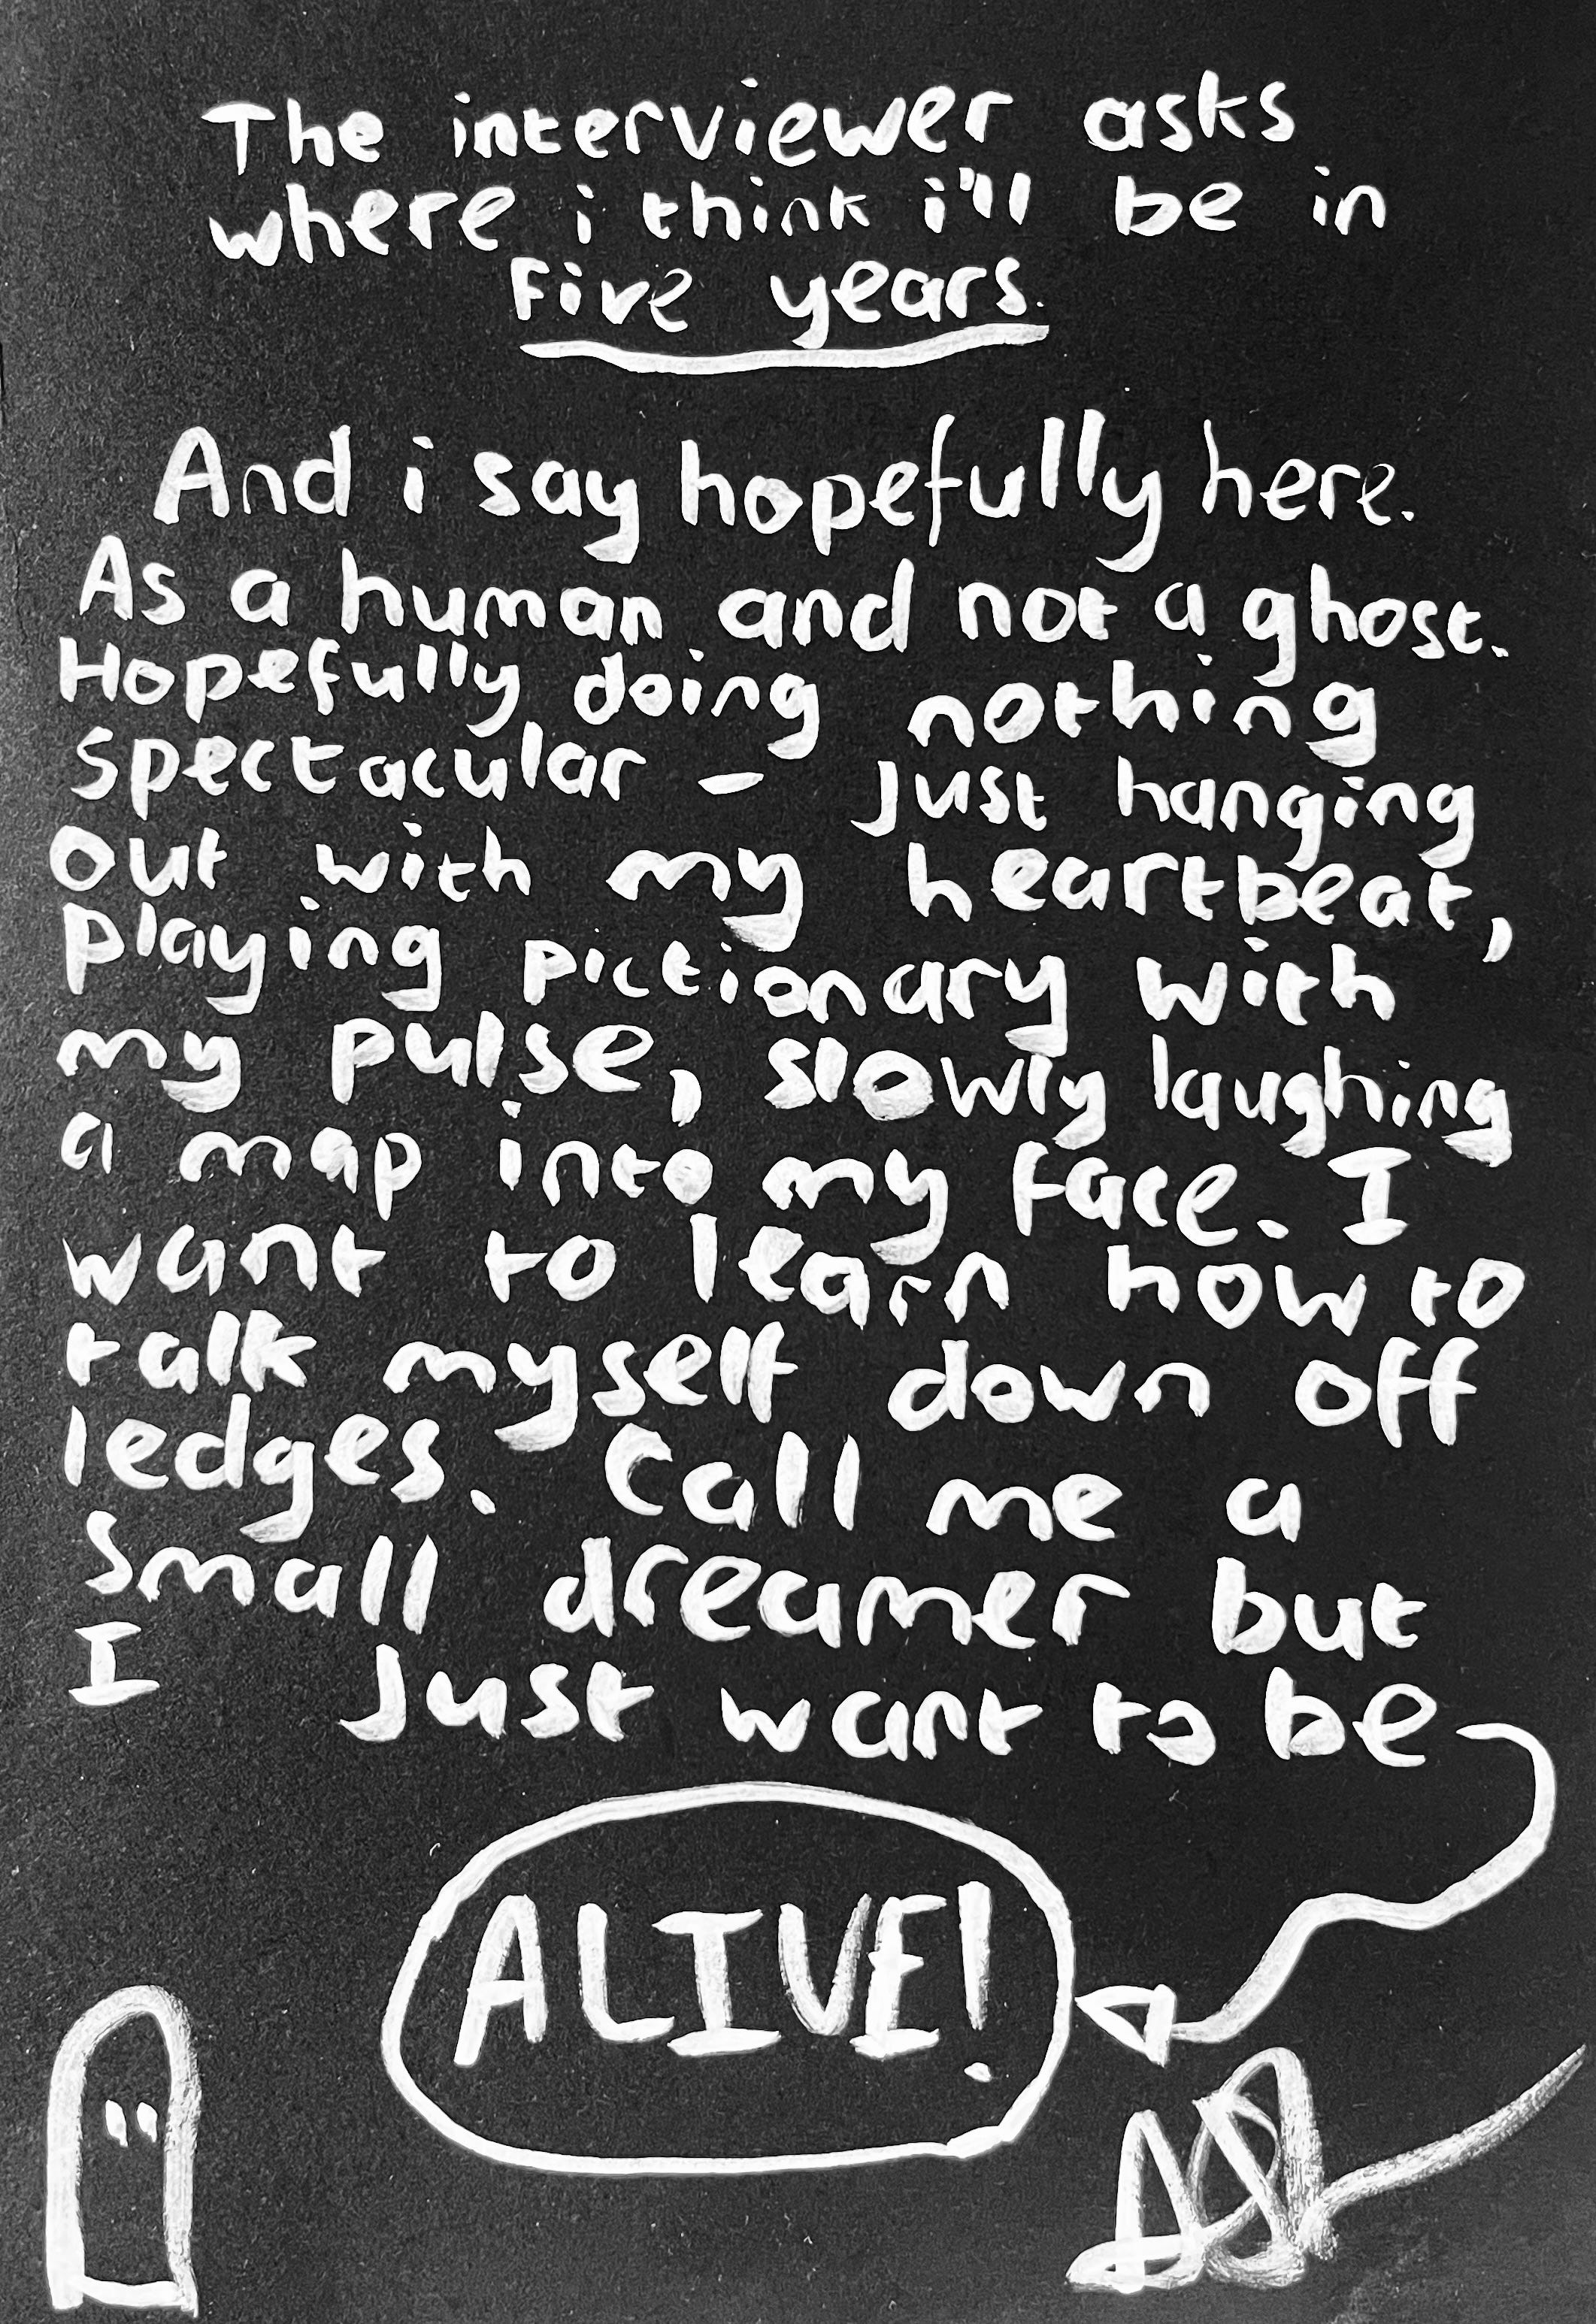 The interviewer asks
where i think i'll be in
five years.
And i say hopefully here.
As a human and not a ghost.
Hopefully doing nothing
spectacular - Just hanging
out with my heartbeat,
playing pictionary with
my pulse, slowly laughing
a map into my face. I
want to learn how to
talk myself down off
ledges. Call me a
small dreamer but
I Just want to be
ALIVE!